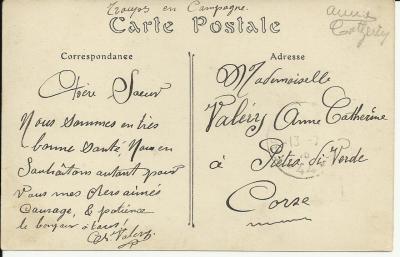 Troupes en Campagne.
Carte Postale
Correspondance
Chère Soeur
Nous sommes en très
bonne santé, Nous en
Souhaitons autant pour
Vous mes chers aimés
Courage, & patience
le bonjour à tous
Valery
Adresse
Mademoiselle
Valéry Anne Catherine
à Piétra-di-Verde
Corse